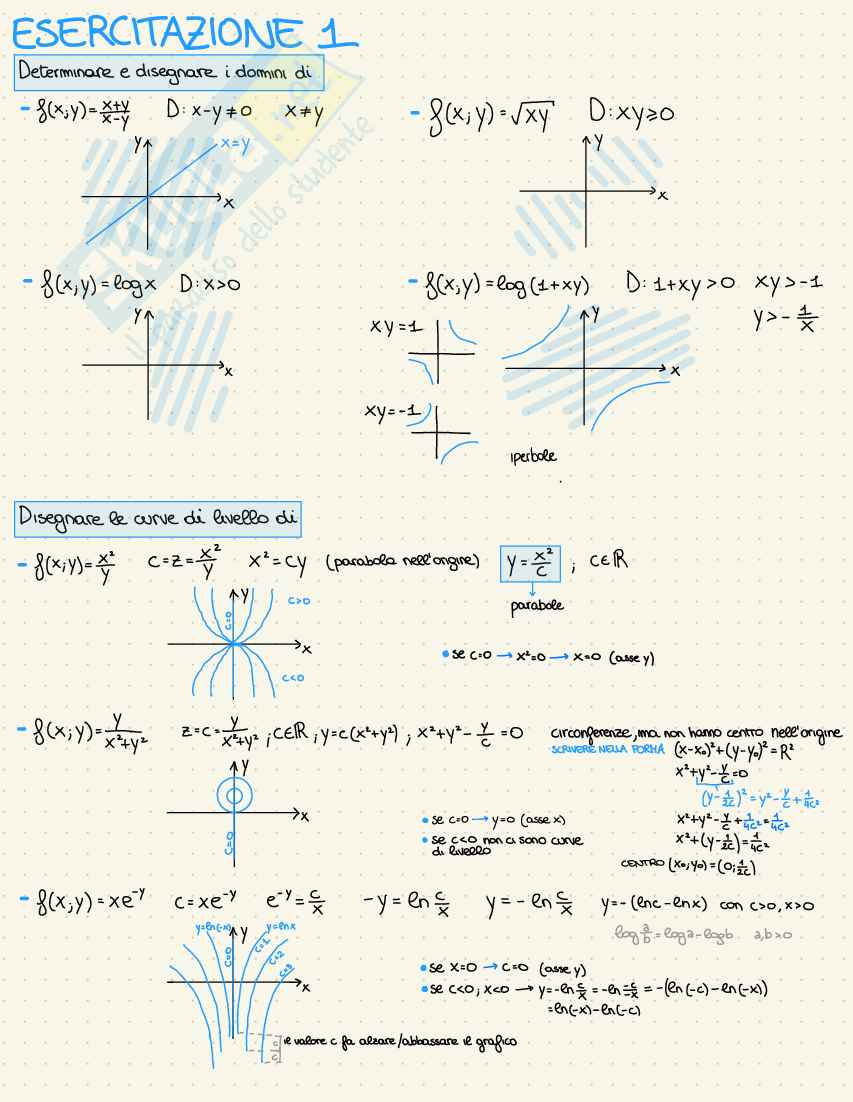 ESERCITAZIONE 1
Determinare e disegnare i domini di
- f(x;y) = x+y/x-y D: x-y≠0 x≠y
y x=y
x
- f(x;y) = √xy D: xy≥0
y
x
- f(x;y) = log x D: x>0
y
x
- f(x;y) = log(1+xy) D: 1+xy>0 xy>-1
y>-1/x
xy=1
y
x
xy=-1
iperbole
Il paradiso dello studente
Disegnare le curve di livello di
- f(x;y) = x²/y c=z=x²/y x²=cy (parabola nell'origine) y=x²/c ; c∈ℝ
parabole
y
c=0 c>0
x
c<0
• se c=0 → x²=0 → x=0 (asse y)
- f(x;y) = y/x²+y² z=c=y/x²+y² ; c∈ℝ ; y=c(x²+y²) ; x²+y²-y/c=0 circonferenze, ma non hanno centro nell'origine
SCRIVERE NELLA FORMA (x-x₀)²+(y-y₀)²=R²
x²+y²-y/c=0
(y-1/2c)²=y²-y/c+1/4c²
x²+y²-y/c+1/4c²=1/4c²
x²+(y-1/2c)=1/4c²
CENTRO (x₀;y₀)=(0;1/2c)
y
x
c=0
• se c=0 → y=0 (asse x)
• se c<0 non ci sono curve
di livello
- f(x;y) = xe^-y c=xe^-y e^-y=c/x -y=ln c/x y=-ln c/x y=-(lnc-lnx) con c>0, x>0
log a/b = loga-logb a,b>0
y=ln(-x) y y=lnx
c=0 c=1
c=2
c=3
x
• se x=0 → c=0 (asse y)
• se c<0; x<0 → y=-ln c/x = -ln -c/-x = -(ln(-c)-ln(-x))
=ln(-x)-ln(-c)
c
c
il valore c fa alzare/abbassare il grafico